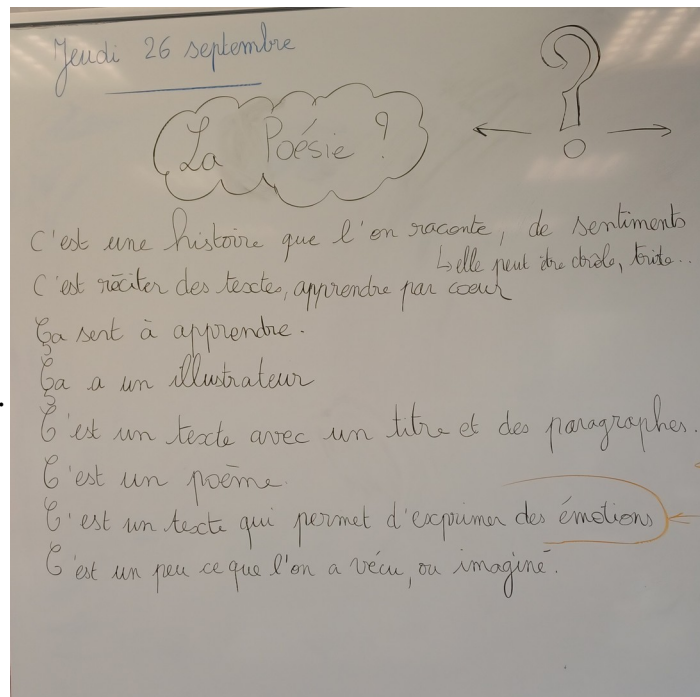 Jeudi 26 septembre
La Poésie ?
?
C'est une histoire que l'on raconte, de sentiments
↳ elle peut être drôle, triste...
C'est réciter des textes, apprendre par coeur
Ça sert à apprendre.
Ça a un illustrateur
C'est un texte avec un titre et des paragraphes.
C'est un poème.
C'est un texte qui permet d'exprimer des émotions
C'est un peu ce que l'on a vécu, ou imaginé.